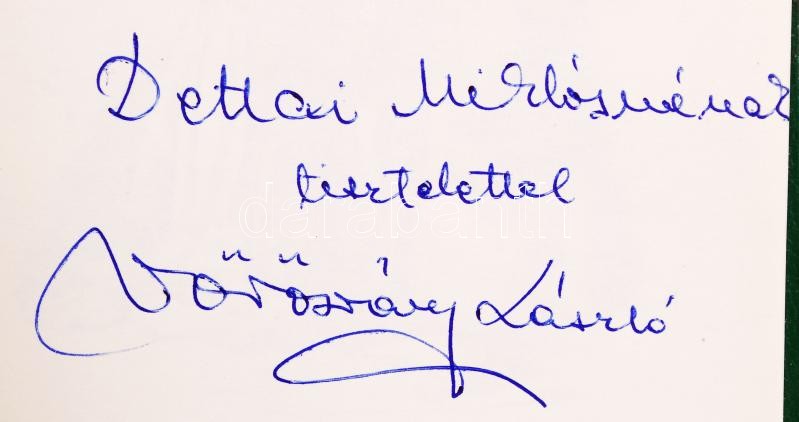 Dettai Miklósnénak
tisztelettel
Vörösváry László
darabanth